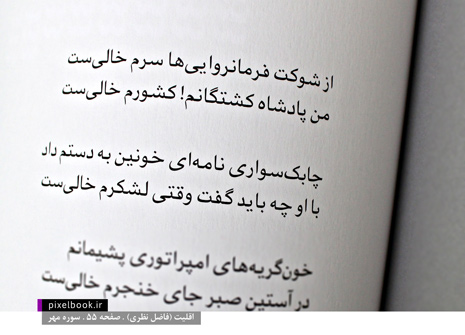 از شوکت فرمانروایی‌ها سرم خالی‌ست
من پادشاه کشتگانم! کشورم خالی‌ست
چابک‌سواری نامه‌ای خونین به دستم داد
با او چه باید گفت وقتی لشکرم خالی‌ست
خون‌گریه‌های امپراتوری پشیمانم
در آستین صبر جای خنجرم خالی‌ست
pixelbook.ir
اقلیت (فاضل نظری) . صفحه ۵۵ . سوره مهر